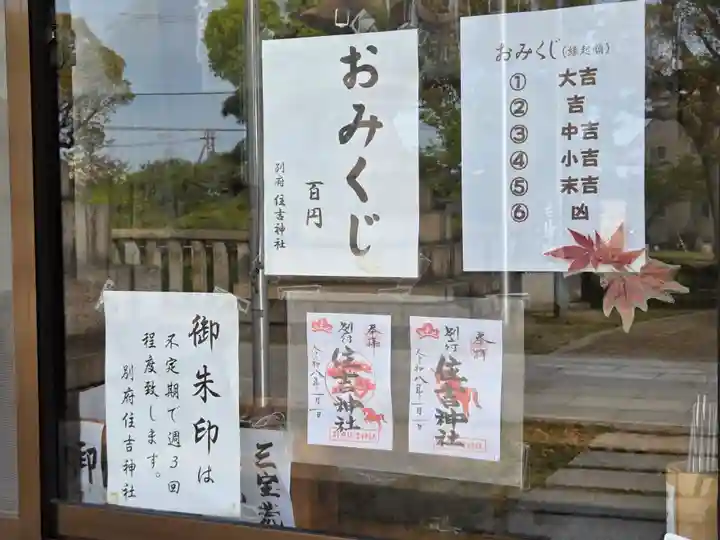 おみくじ
百円
別府 住吉神社
おみくじ(縁起順)
① 大吉
② 吉
③ 中吉
④ 小吉
⑤ 末吉
⑥ 凶
御朱印は
不定期で週3回
程度致します。
別府住吉神社
奉拝
別府
住吉神社
令和八年一月一日
奉拝
別府
住吉神社
令和八年一月一日
御
三宝荒